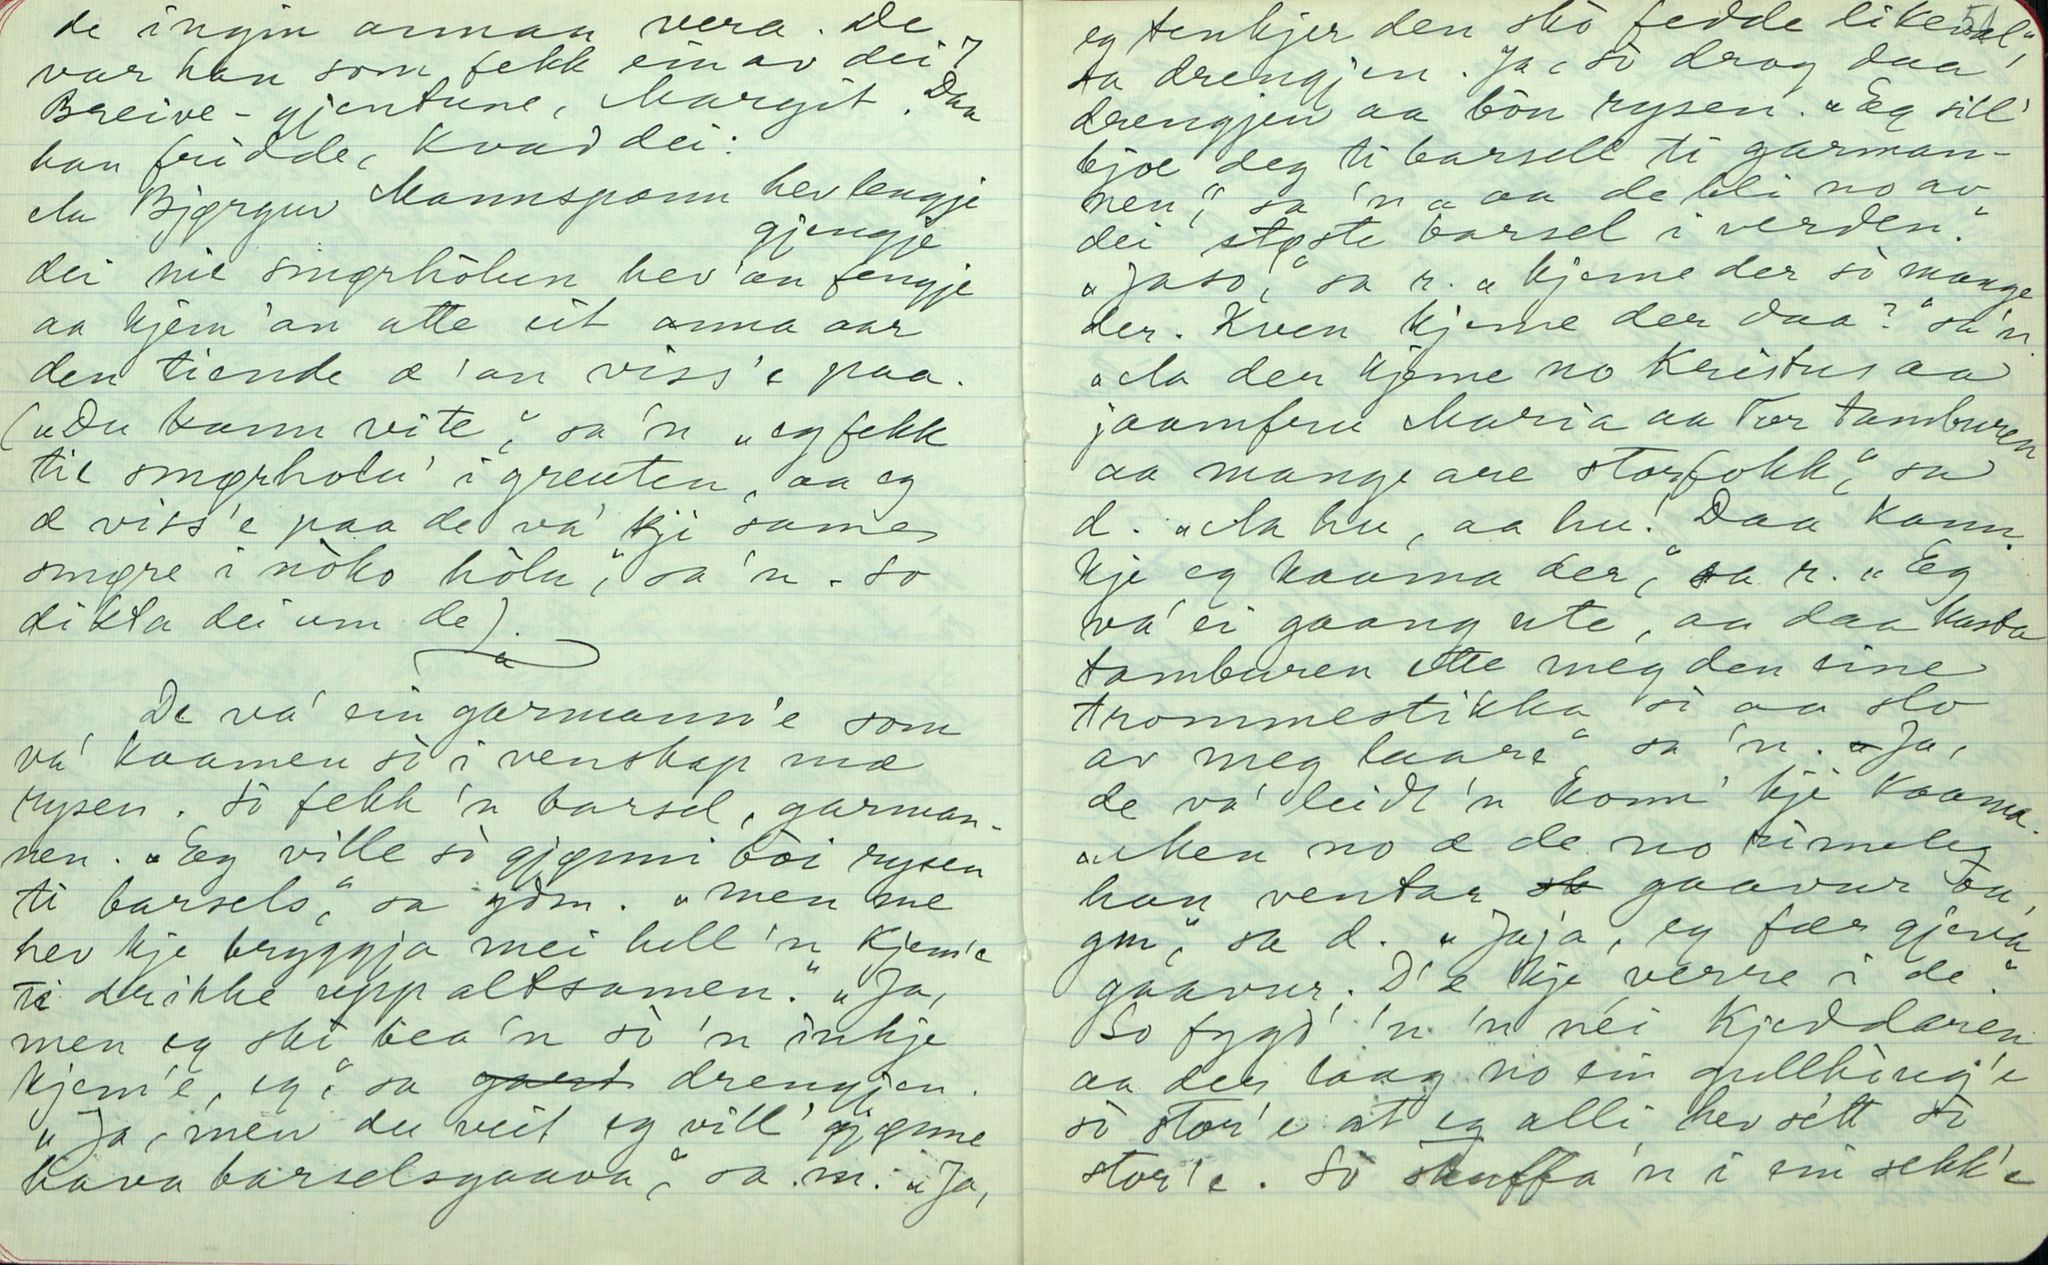 de ingin annan vera. De
var han som fekk ein av dei
Breive-gjentune, Margit. Daa
han fridde, kvad dei:
Aa Bjørguv Mannspann hev lengje
gjengje
dei nie smørhòlun hev 'an fengje
aa kjem 'an atte eit anna aar
den tiende æ 'an viss'e paa.
("Du kann vite", sa 'n "eg fekk
tie smørholu' i grauten, aa eg
æ viss'e paa de va' kji same
smøre i nòko hòlu", sa 'n. So
dikta dei um de).
De va' ein garmann'e som
va' kaamen sò i venskap mæ
rysen. Sò fekk 'n barsel, garman-
nen. "Eg ville sò gjønni bòi rysen
ti barsels", sa gdm. "men me
hev kje bryggja mei hell 'n kjem'e
ti drikke upp altsamen." "Ja,
men eg ski bea 'n sò 'n inkje
kjem'e, eg", sa drengjen.
"Ja, men du veit eg vill' gjønne
hava barselsgaava", sa m. "Ja,
51
eg tenkjer den skò fedde likevæl",
sa drengjen. Ja, sò drog daa
drengjen aa bòn rysen. "Eg sill'
bjoe deg ti barsell ti garman-
nen", sa 'n "aa de bli no av
dei største barsel i verden."
"Jaso", sa r. "kjeme der sò mange
der. Kven kjeme der daa?" sa 'n.
"Aa der kjeme no Kristus aa
jaamfru Maria aa Tor tamburen
aa mange are storfokk", sa
d. "Aa hu, aa hu! Daa kann
kje eg kaama der", sa r. "Eg
va' ei gaang ute, aa daa kasta
tamburen ette meg den eine
trommestikka si aa slo
av meg laare" sa 'n. "Ja,
de va' leidt 'n konn' kje kaama.
"Men no æ de no rimeleg
han ventar gaavur òu,
gm", sa d. "Jaja, eg fær gjeva
gaavur. D'æ kje verre i de."
So fygd' 'n 'n néi kjeddaren
aa der laag no ein gullhaug'e
sò stor'e at eg alli hev sétt sò
stor'e. Sò skuffa 'n i ein sekk'e